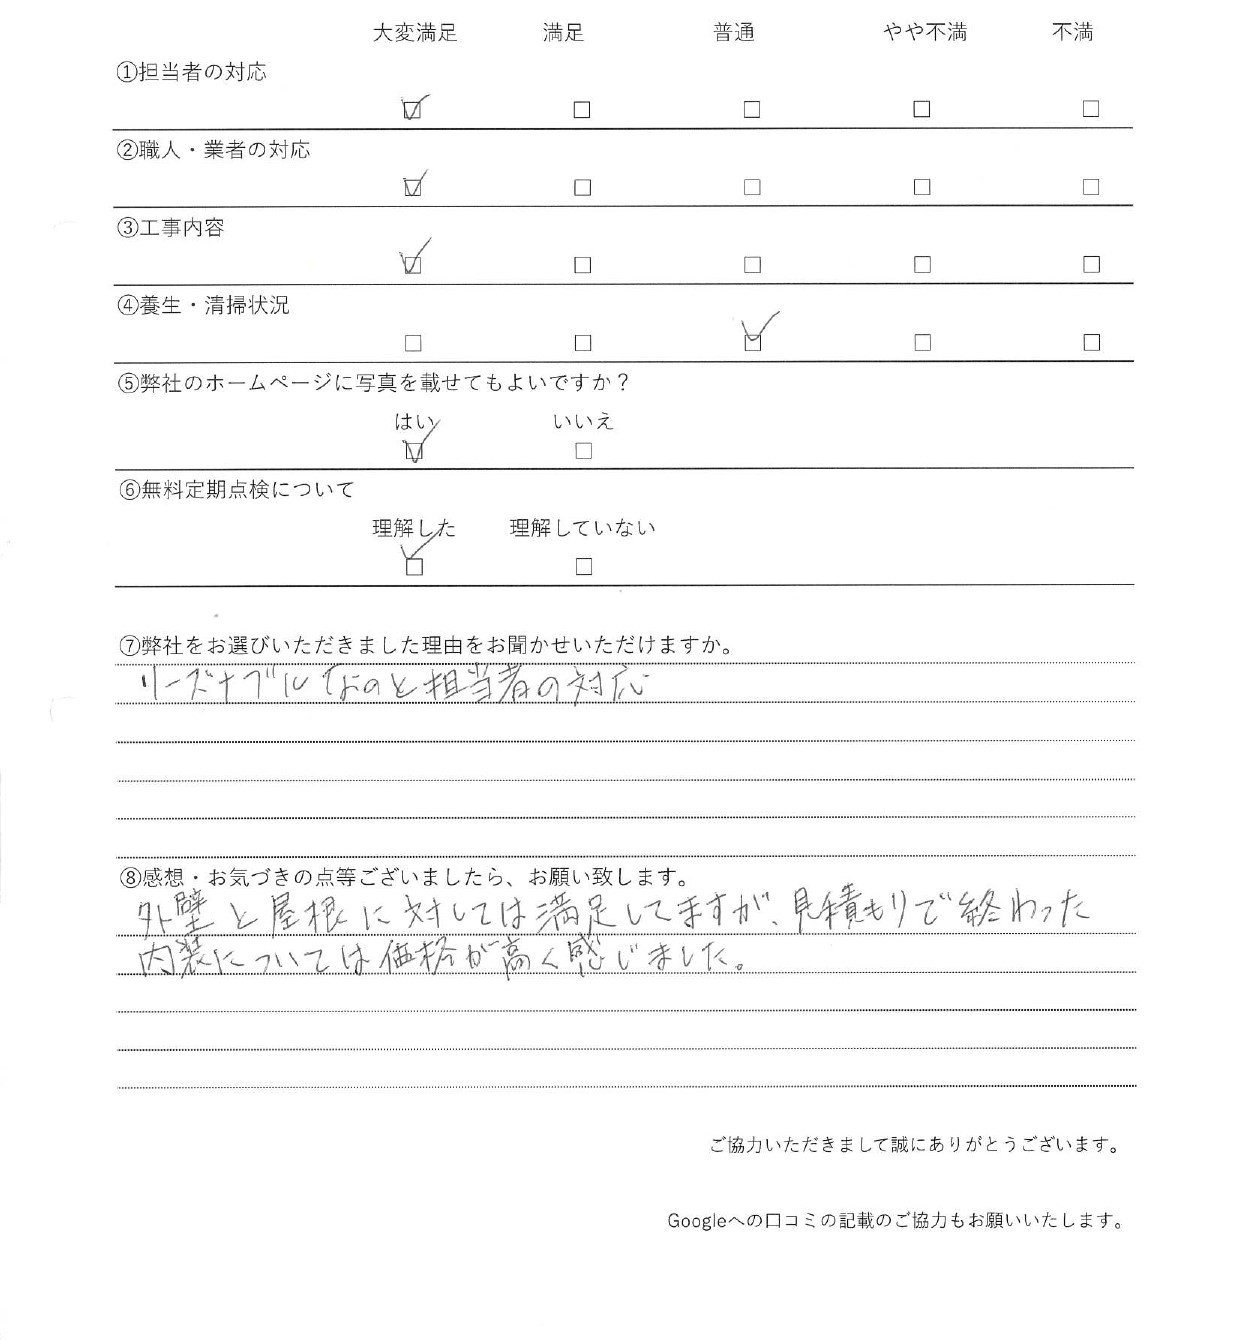 大変満足 満足 普通 やや不満 不満
①担当者の対応
☑ □ □ □ □
②職人・業者の対応
☑ □ □ □ □
③工事内容
☑ □ □ □ □
④養生・清掃状況
□ □ ☑ □ □
⑤弊社のホームページに写真を載せてもよいですか？
はい いいえ
☑ □
⑥無料定期点検について
理解した 理解していない
☑ □
⑦弊社をお選びいただきました理由をお聞かせいただけますか。
リーズナブルなのと担当者の対応
⑧感想・お気づきの点等ございましたら、お願い致します。
外壁と屋根に対しては満足してますが、見積もりで終わった
内装については価格が高く感じました。
ご協力いただきまして誠にありがとうございます。
Googleへの口コミの記載のご協力もお願いいたします。